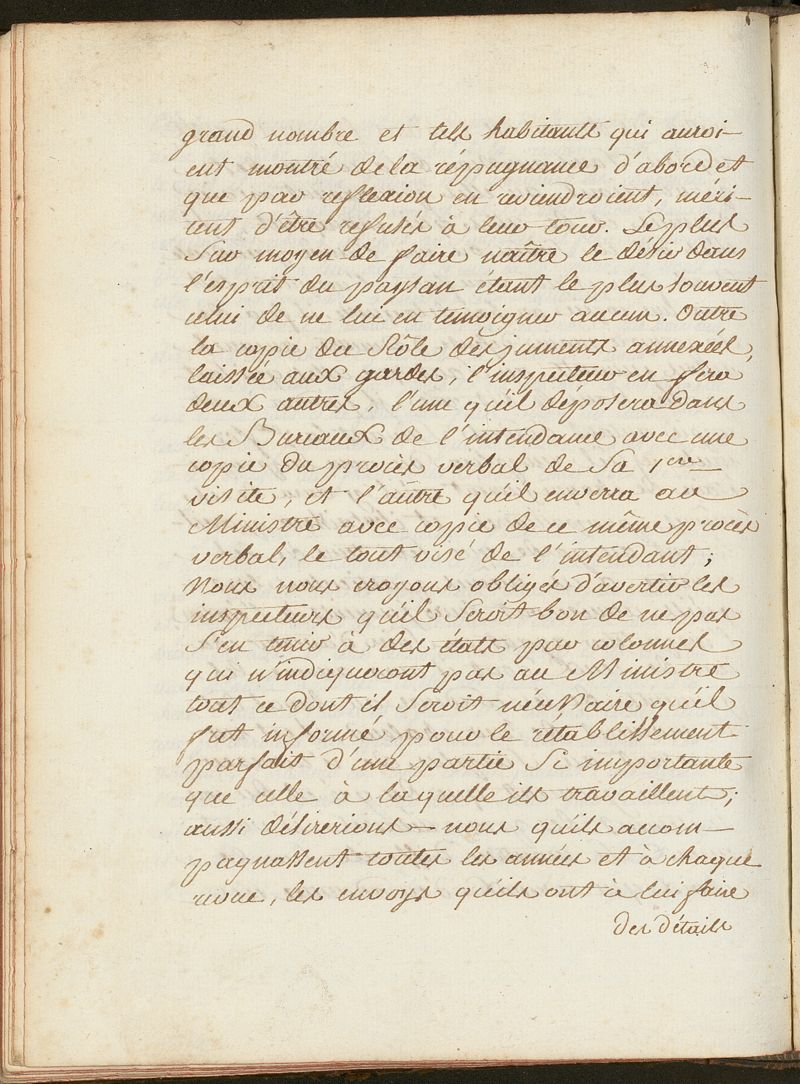 grand nombre et tels habitants qui auroi-
ent montré de la répugnance d'abord et
que par reflexion en reviendroient, méri-
tent d'être refusés à leur tour. Le plus
Sur moyen de faire naître le désir dans
l'esprit du paysan étant le plus souvent
celui de ne lui en temoigner aucun. Outre
la copie du Rôle des juments annexées,
laissée aux gardes, l'inspecteur en fera
deux autres, l'une qu'il déposera dans
les Bureaux de l'intendance avec une
copie du procès verbal de Sa 1ere
visite, et l'autre qu'il enverra au
Ministre avec copie de ce même procès
verbal, le tout visé de l'intendant;
Nous nous croyons obligés d'avertir les
inspecteurs qu'il Seroit bon de ne pas
S'en tenir à des états par colonnes
qui n'indiqueront pas au Ministre
tout ce dont il Seroit nécessaire qu'il
fut informé pour le rétablissement
parfait d'une partie Si importante
que celle à laquelle ils travaillent;
aussi désirerions-nous qu'ils accom-
pagnassent toutes les années et à chaque
revue, les envoys qu'ils ont à lui faire
des détails